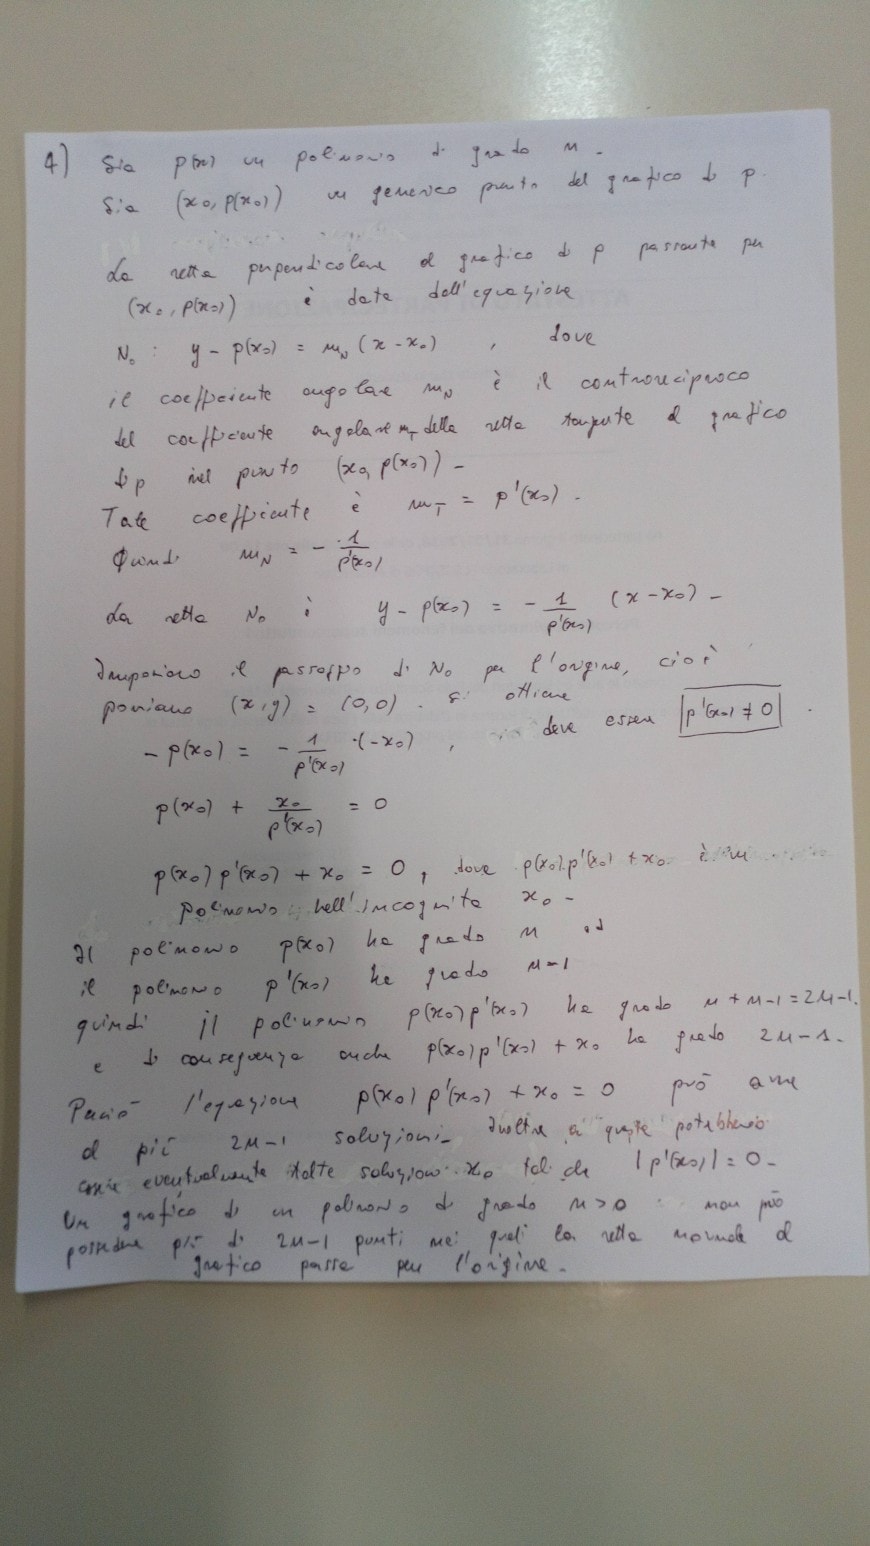 4) Sia p(x) un polinomio di grado n.
Sia (x₀, p(x₀)) un generico punto del grafico di p.
La retta perpendicolare al grafico di p passante per
(x₀, p(x₀)) è data dall'equazione
N₀ : y - p(x₀) = m_N (x - x₀) , dove
il coefficiente angolare m_N è il controreciproco
del coefficiente angolare m_T della retta tangente al grafico
di p nel punto (x₀, p(x₀)) -
Tale coefficiente è m_T = p'(x₀) .
Quindi m_N = - 1/p'(x₀)
La retta N₀ è y - p(x₀) = - 1/p'(x₀) (x - x₀) -
Imponiamo il passaggio di N₀ per l'origine, cioè
poniamo (x, y) = (0, 0) . Si ottiene
- p(x₀) = - 1/p'(x₀) · (-x₀) , deve essere p'(x₀) ≠ 0 .
p(x₀) + x₀/p'(x₀) = 0
p(x₀) p'(x₀) + x₀ = 0 , dove p(x₀) p'(x₀) + x₀ è un
polinomio nell'incognita x₀ -
Il polinomio p(x₀) ha grado n ed
il polinomio p'(x₀) ha grado n-1
quindi il polinomio p(x₀) p'(x₀) ha grado n + n-1 = 2n-1.
e di conseguenza anche p(x₀) p'(x₀) + x₀ ha grado 2n-1.
Perciò l'equazione p(x₀) p'(x₀) + x₀ = 0 può avere
al più 2n-1 soluzioni- Inoltre a queste potrebbero
essere eventualmente tolte soluzioni x₀ tali che | p'(x₀) | = 0 -
Un grafico di un polinomio di grado n > 0 non può
possedere più di 2n-1 punti nei quali la retta normale al
grafico passa per l'origine.